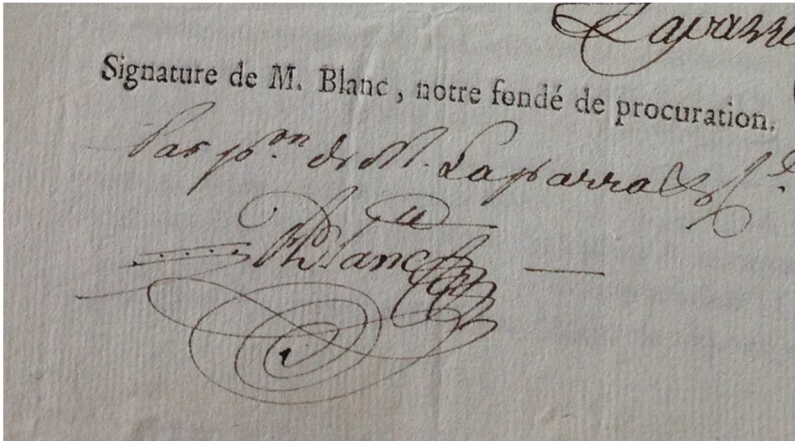 Laparra
Signature de M. Blanc, notre fondé de procuration.
Par p.on de M. Laparra &
Blanc